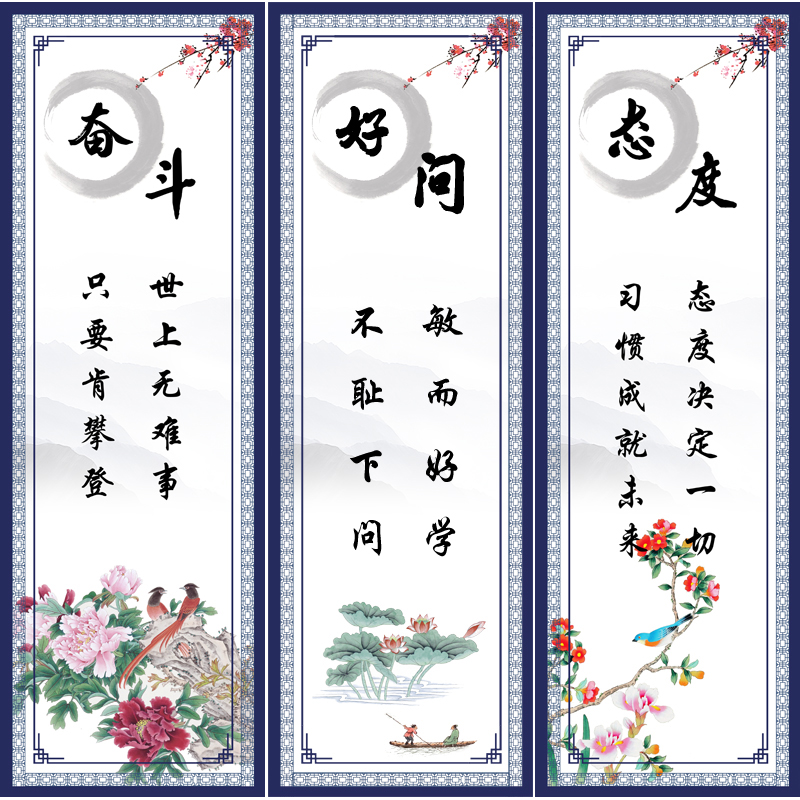 奋斗
世上无难事
只要肯攀登
好问
敏而好学
不耻下问
态度
态度决定一切
习惯成就未来